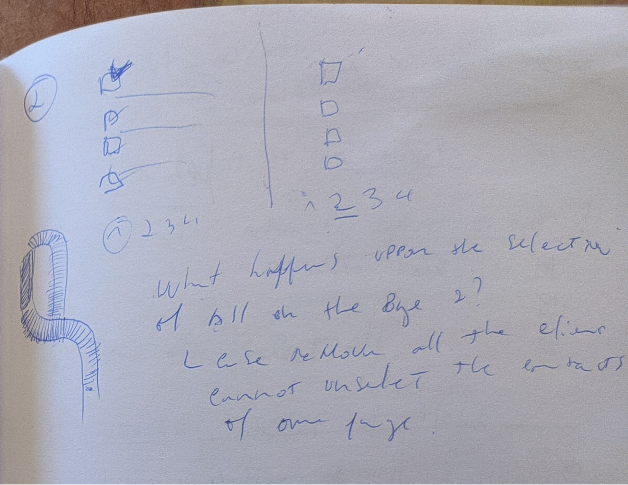 2
1 2 3 4
1 2 3 4
What happens uppon the selection
of All on the Page 2?
all the
cannot unselect the contacts
of one page.